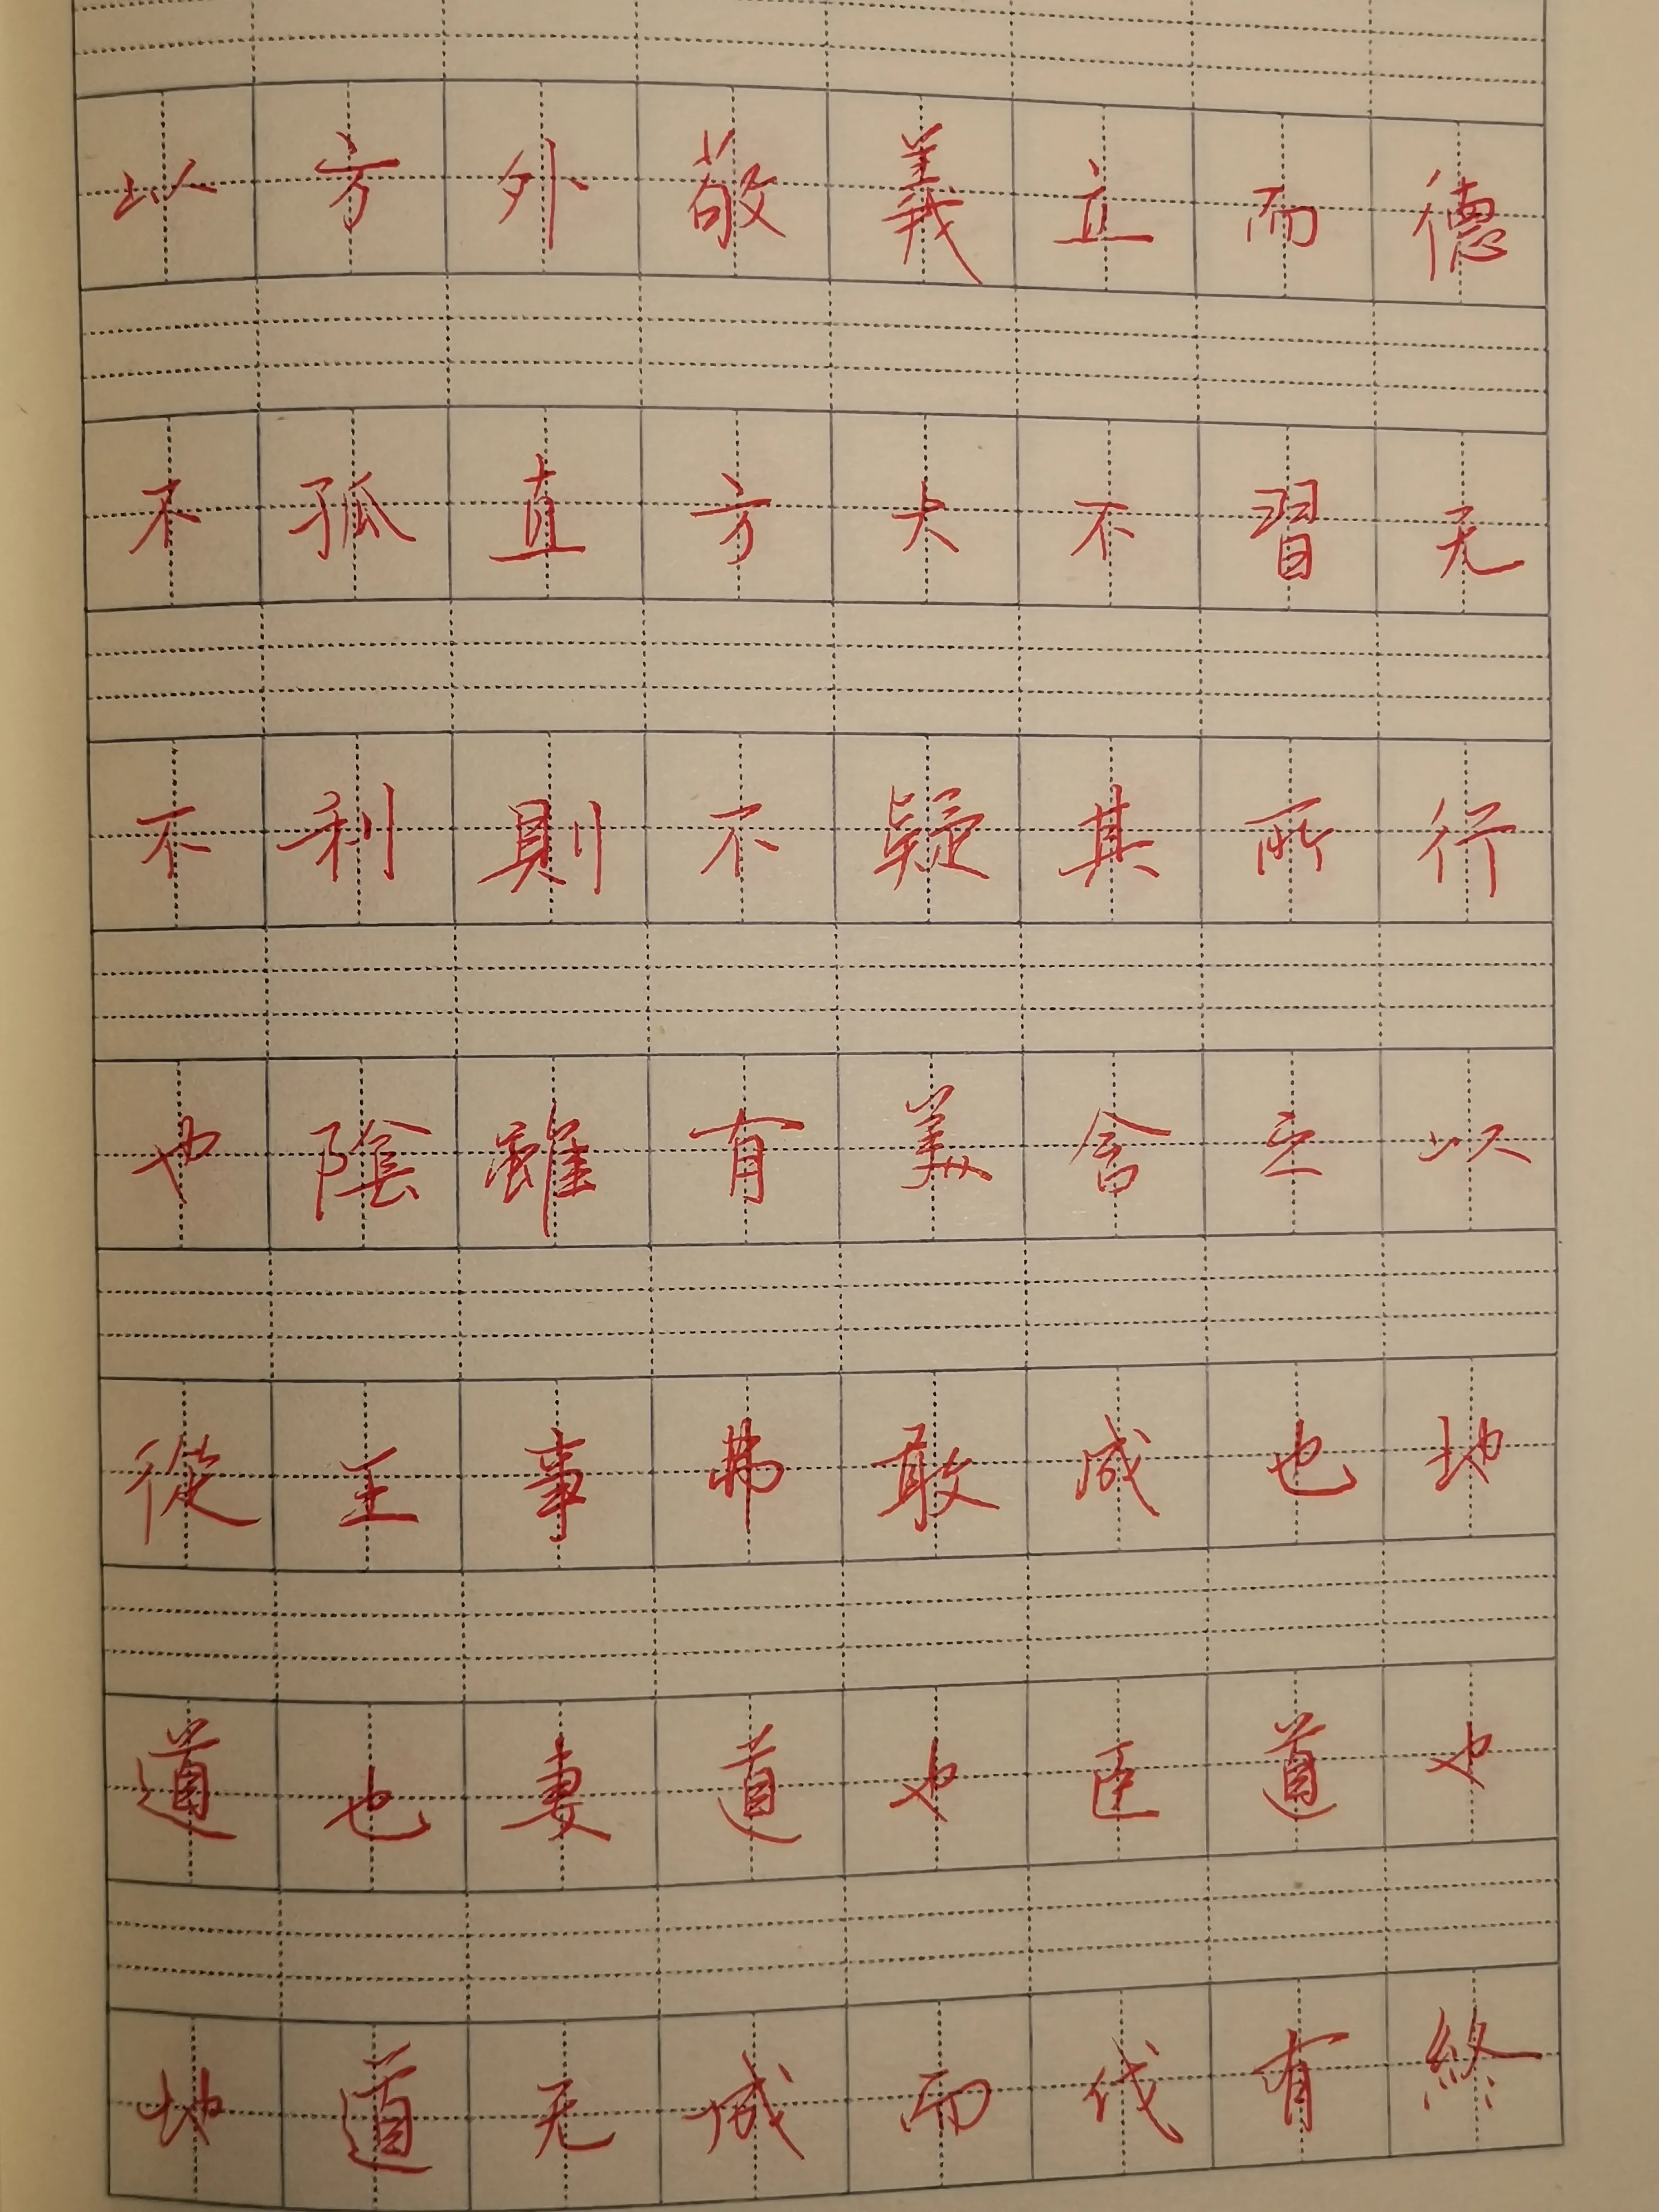 以方外敬義立而德
不孤直方大不習无
不利則不疑其所行
也陰雖有美含之以
從王事弗敢成也地
道也妻道也臣道也
地道无成而代有終